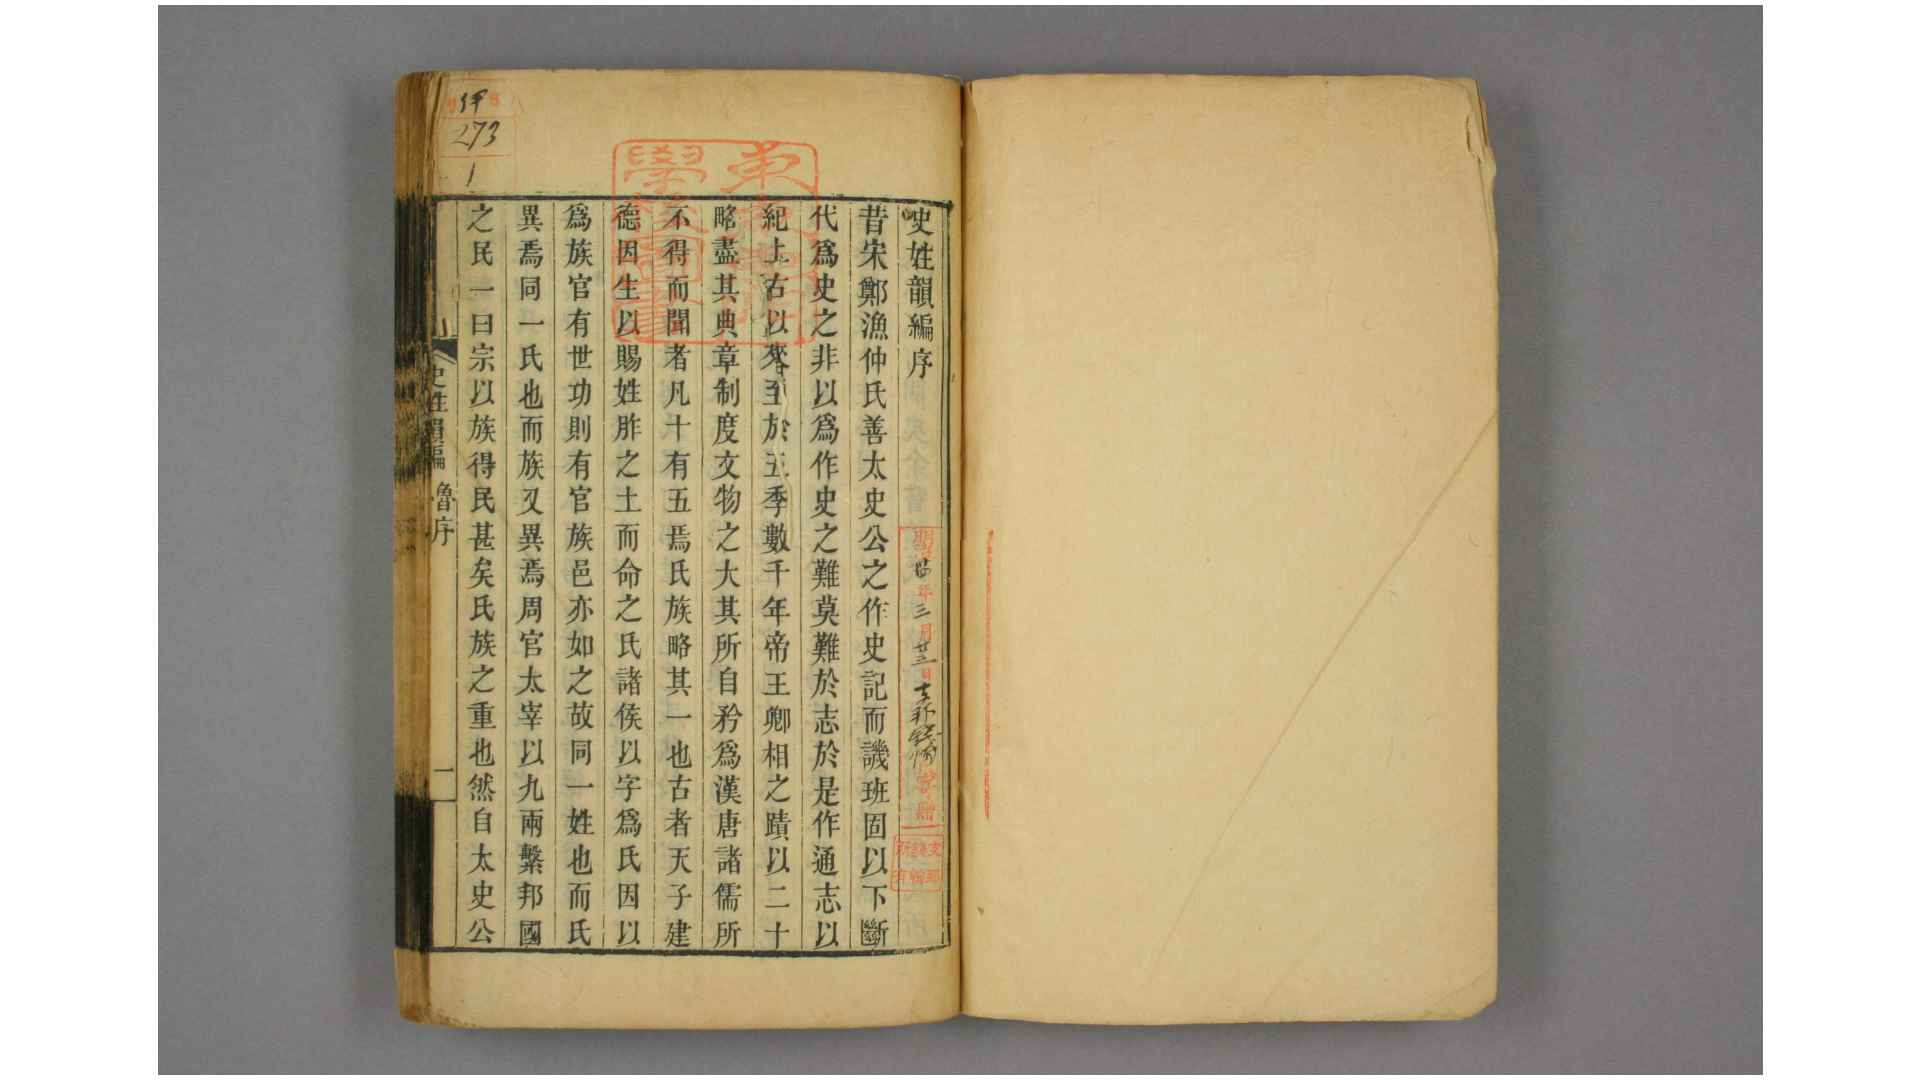 史姓韻編序
昔宋鄭漁仲氏善太史公之作史記而譏班固以下斷
代爲史之非以爲作史之難莫難於志於是作通志以
紀上古以來至於五季數千年帝王卿相之蹟以二十
略盡其典章制度文物之大其所自矜爲漢唐諸儒所
不得而聞者凡十有五焉氏族略其一也古者天子建
德因生以賜姓胙之土而命之氏諸侯以字爲氏因以
爲族官有世功則有官族邑亦如之故同一姓也而氏
異焉同一氏也而族又異焉周官太宰以九兩繫邦國
之民一曰宗以族得民甚矣氏族之重也然自太史公
史姓韻編 魯序 一
273
1
年三月廿三日
寄贈